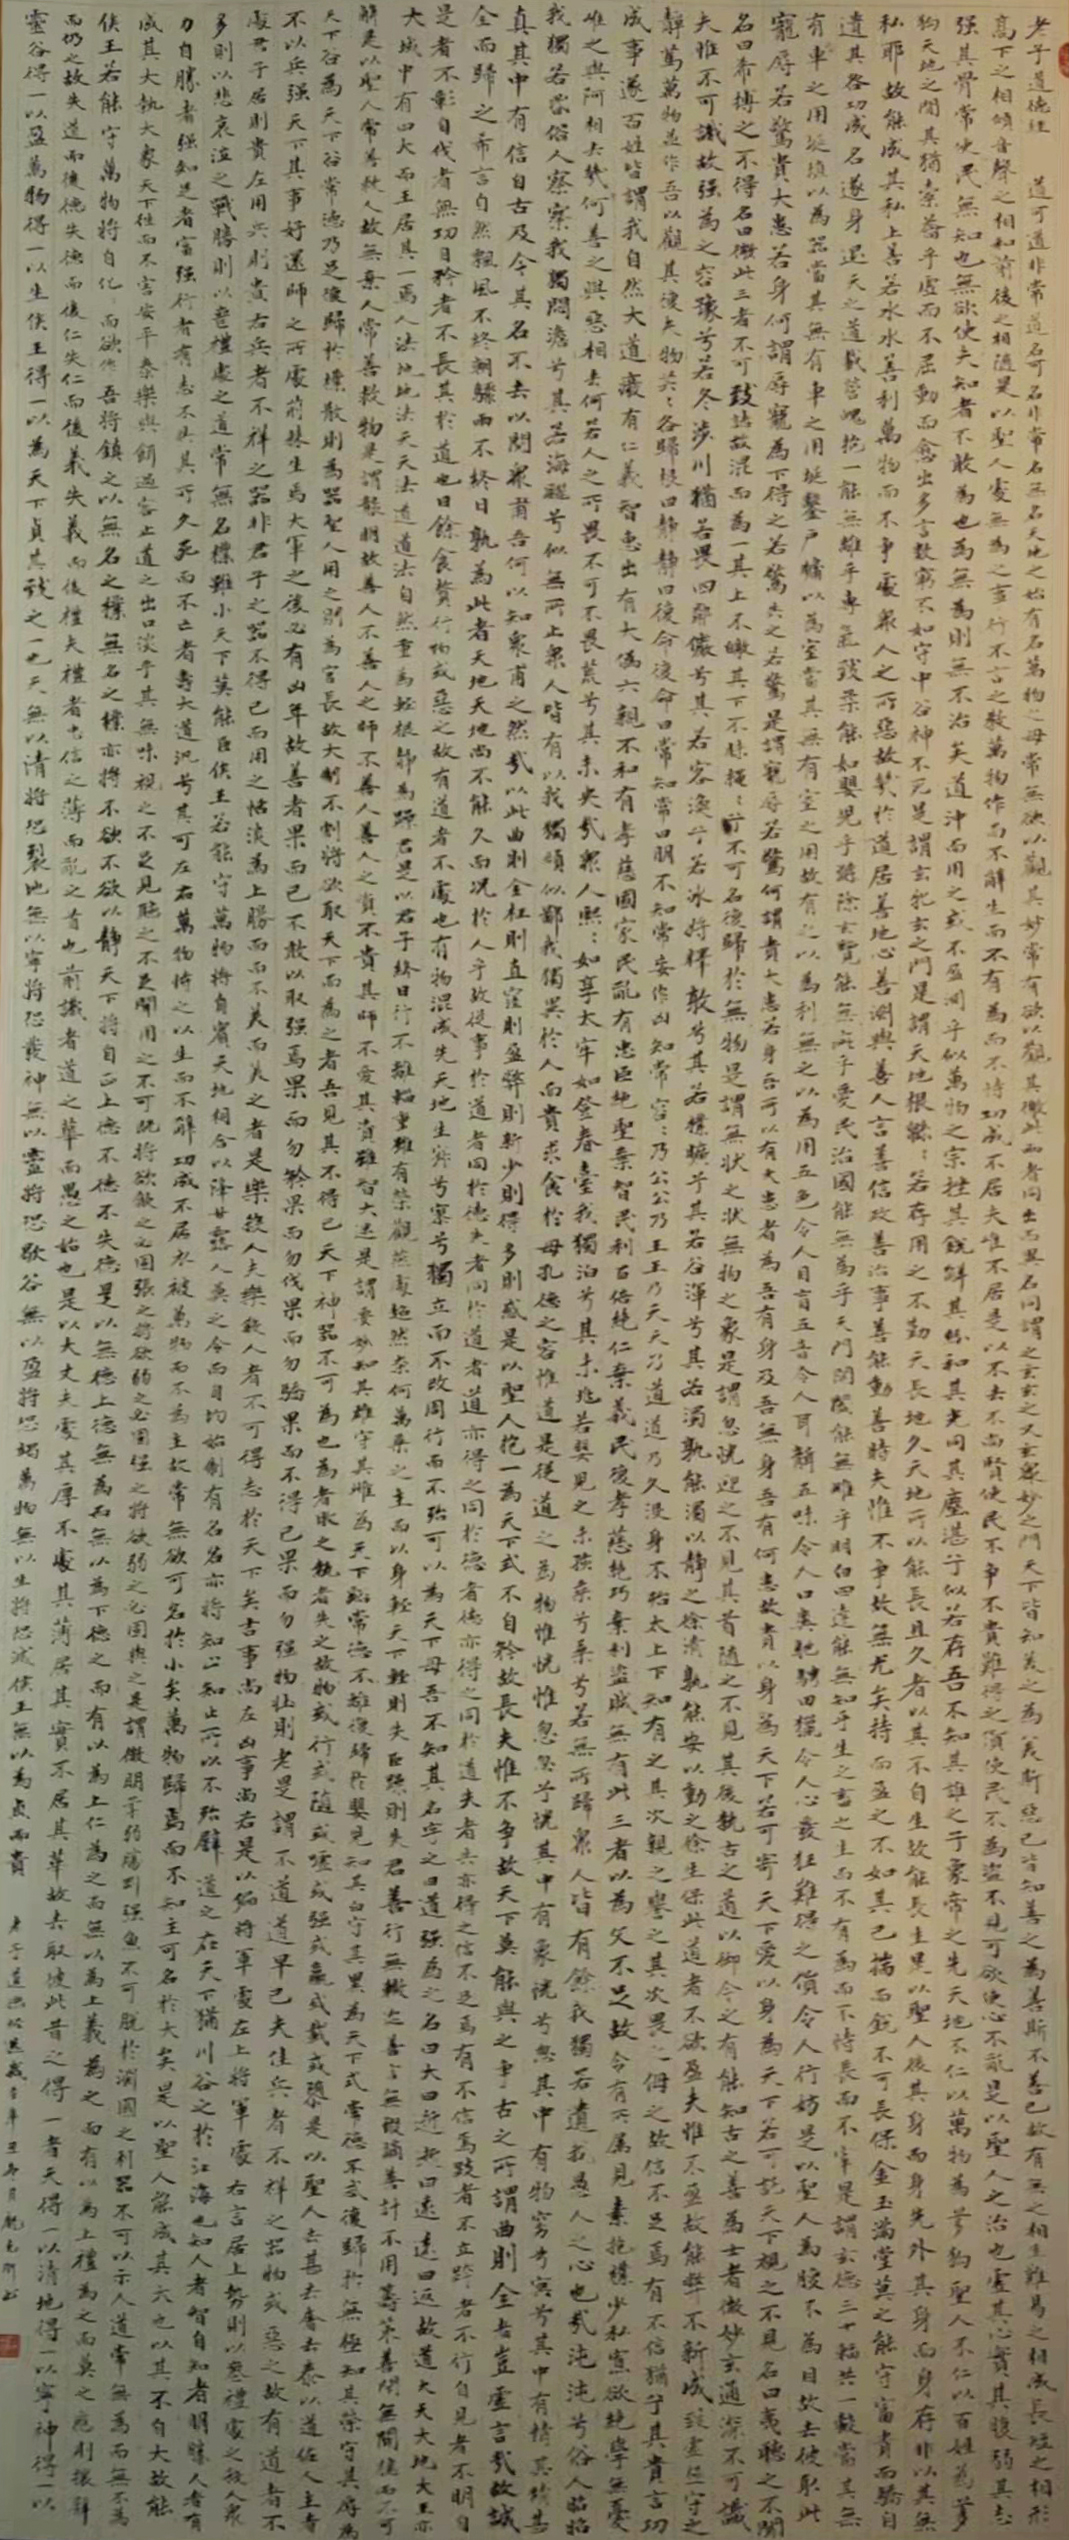 老子道德經 道可道非常道名可名非常名無名天地之始有名萬物之母常無欲以觀其妙常有欲以觀其徼此兩者同出而異名同謂之玄玄之又玄眾妙之門天下皆知美之為美斯惡已皆知善之為善斯不善已故有無之相生難易之相成長短之相形
高下之相傾音聲之相和前後之相隨是以聖人處無為之事行不言之教萬物作而不辭生而不有為而不恃功成不居夫唯不居是以不去不尚賢使民不爭不貴難得之貨使民不為盜不見可欲使心不亂是以聖人之治也虛其心實其腹弱其志
強其骨常使民無知也無欲使夫知者不敢為也為無為則無不治矣道沖而用之或不盈淵乎似萬物之宗挫其銳解其紛和其光同其塵湛乎似若存吾不知其誰之子象帝之先天地不仁以萬物為芻狗聖人不仁以百姓為芻
狗天地之間其猶橐籥乎虛而不屈動而愈出多言數窮不如守中谷神不死是謂玄牝玄之門是謂天地根緜緜若存用之不勤天長地久天地所以能長且久者以其不自生故能長生是以聖人後其身而身先外其身而身存非以其無
私耶故能成其私上善若水水善利萬物而不爭處眾人之所惡故幾於道居善地心善淵與善人言善信政善治事善能動善時夫惟不爭故無尤矣持而盈之不如其已揣而銳不可長保金玉滿堂莫之能守富貴而驕自
遺其咎功成名遂身退天之道載營魄抱一能無離乎專氣致柔能如嬰兒乎滌除玄覽能無疵乎愛民治國能無為乎天門開闔能無雌乎明白四達能無知乎生之畜之生而不有為而不恃長而不宰是謂玄德三十輻共一轂當其無
有車之用埏埴以為器當其無有車之用埏鑿戶牖以為室當其無有室之用故有之以為利無之以為用五色令人目盲五音令人耳聾五味令人口爽馳騁田獵令人心發狂難得之貨令人行妨是以聖人為腹不為目故去彼取此
寵辱若驚貴大患若身何謂辱寵為下得之若驚失之若驚是謂寵辱若驚何謂貴大患若身吾所以有大患者為吾有身及吾無身吾有何患故貴以身為天下若可寄天下愛以身為天下若可託天下視之不見名曰夷聽之不聞
名曰希搏之不得名曰微此三者不可致詰故混而為一其上不皦其下不昧繩:兮不可名復歸於無物是謂無狀之狀無物之象是謂忽恍迎之不見其首隨之不見其後執古之道以御今之有能知古之善為士者微妙玄通深不可識
夫惟不可識故強為之容豫兮若冬涉川猶若畏四鄰儼兮其若容渙兮若冰將釋敦兮其若樸曠兮其若谷渾兮其若濁孰能濁以靜之徐清孰能安以動之徐生保此道者不欲盈夫惟不盈故能弊不新成致虛極守之
靜篤萬物並作吾以觀其復夫物芸:各歸根曰靜靜曰復命復命曰常知常曰明不知常妄作凶知常容:乃公公乃王王乃天天乃道道乃久沒身不殆太上下知有之其次親之譽之其次畏之侮之故信不足焉有不信猶兮其貴言功
成事遂百姓皆謂我自然大道廢有仁義智惠出有大偽六親不和有孝慈國家昏亂有忠臣絕聖棄智民利百倍絕仁棄義民復孝慈絕巧棄利盜賊無有此三者以為文不足故令有所屬見素抱樸少私寡欲絕學無憂
唯之與阿相去幾何善之與惡相去何若人之所畏不可不畏荒兮其未央哉眾人熙:如享太牢如登春臺我獨泊兮其未兆若嬰兒之未孩乘兮乘兮若無所歸眾人皆有餘我獨若遺我愚人之心也哉沌沌兮俗人昭昭
我獨若昏俗人察察我獨悶澹兮其若海飂兮似無所止眾人皆有以我獨頑似鄙我獨異於人而貴求食於母孔德之容惟道是從道之為物惟恍惟忽忽兮恍其中有象恍兮忽其中有物窈兮冥兮其中有精其精甚
真其中有信自古及今其名不去以閱眾甫吾何以知眾甫之然哉以此曲則全枉則直窪則盈弊則新少則得多則惑是以聖人抱一為天下式不自矜故長夫惟不爭故天下莫能與之爭古之所謂曲則全者豈虛言哉故誠
全而歸之希言自然飄風不終朝驟雨不終日孰為此者天地天地尚不能久而況於人乎故從事於道者同於德失者同於道者道亦得之同於德者德亦得之同於道失者失亦得之信不足焉有不信焉跂者不立跨者不行自見者不明自
是者不彰自伐者無功自矜者不長其於道也曰餘食贅行物或惡之故有道者不處也有物混成先天地生寂兮寞兮獨立而不改周行而不殆可以為天下母吾不知其名字之曰道強為之名曰大曰逝逝曰遠遠曰返故道大天大地大王亦
大域中有四大而王居其一焉人法地地法天天法道道法自然重為輕根靜為躁君是以君子終日行不離輜重雖有榮觀燕處超然柰何萬乘之主而以身輕天下輕則失臣躁則失君善行無轍迹善言無瑕謫善計不用籌策善閉無關鍵而不可
解是以聖人常善救人故無棄人常善救物是謂襲明故善人不善人之師不善人善人之資不貴其師不愛其資雖智大迷是謂要妙知其雄守其雌為天下谿常德不離復歸於嬰兒知其白守其黑為天下式常德不忒復歸於無極知其榮守其辱為
天下谷為天下谷常德乃足復歸於樸散則為器聖人用之則為官長故大制不割將欲取天下而為之者吾見其不得已天下神器不可為也為者敗之執者失之故物或行或隨或噓或強或羸或載或隳是以聖人去甚去奢去泰以道佐人主者
不以兵強天下其事好還師之所處荊棘生焉大軍之後必有凶年故善者果而已不敢以取強焉果而勿矜果而勿伐果而勿驕果而不得已果而勿強物壯則老是謂不道道早已夫佳兵者不祥之器物或惡之故有道者不
處君子居則貴左用兵則貴右兵者不祥之器非君子之器不得已而用之恬淡為上勝而不美而美之者是樂殺人夫樂殺人者不可得志於天下矣吉事尚左凶事尚右是以偏將軍處左上將軍處右言居上勢則以喪禮處之殺人眾
多則以悲哀泣之戰勝則以喪禮處之道常無名樸雖小天下莫能臣侯王若能守萬物將自賓天地相合以降甘露人莫之令而自均始制有名名亦將知止知止所以不殆譬道之在天下猶川谷之於江海也知人者智自知者明勝人者有
力自勝者強知足者富強行者有志不失其所久死而不亡者壽大道汎兮其可左右萬物恃之以生而不辭功成不居衣被萬物而不為主故常無欲可名於小矣萬物歸焉而不知主可名於大矣是以聖人能成其大也以其不自大故能
成其大執大象天下往而不害安平泰樂與餌過客止道之出口淡乎其無味視之不足見聽之不足聞用之不可既將欲歙之必固張之將欲弱之必固強之將欲弱之必固與之是謂微明柔弱勝剛強魚不可脫於淵國之利器不可以示人道常無為而無不為
侯王若能守萬物將自化而欲作吾將鎮之以無名之樸無名之樸亦將不欲不欲以靜天下將自正上德不德是以有德下德不失德是以無德上德無為而無以為下德為之而有以為上仁為之而無以為上義為之而有以為上禮為之而莫之應則攘臂
而仍之故失道而後德失德而後仁失仁而後義失義而後禮夫禮者忠信之薄而亂之首也前識者道之華而愚之始也是以大丈夫處其厚不處其薄居其實不居其華故去彼取此昔之得一者天得一以清地得一以寧神得一以
靈谷得一以盈萬物得一以生侯王得一以為天下貞其致之一也天無以清將恐裂地無以寧將恐發神無以靈將恐歇谷無以盈將恐竭萬物無以生將恐滅侯王無以為貞而貴
老子道德